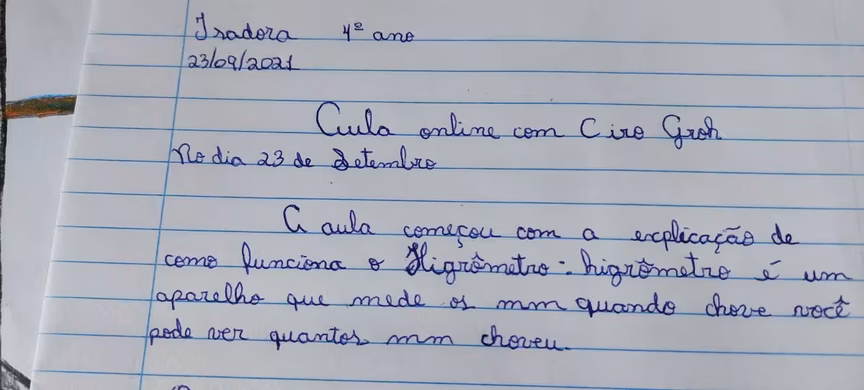 Isadora 4º ano
23/09/2021
Aula online com Ciro Groh
No dia 23 de Setembro
A aula começou com a explicação de
como funciona o Higrômetro: higrômetro é um
aparelho que mede os mm quando chove você
pode ver quantos mm choveu.